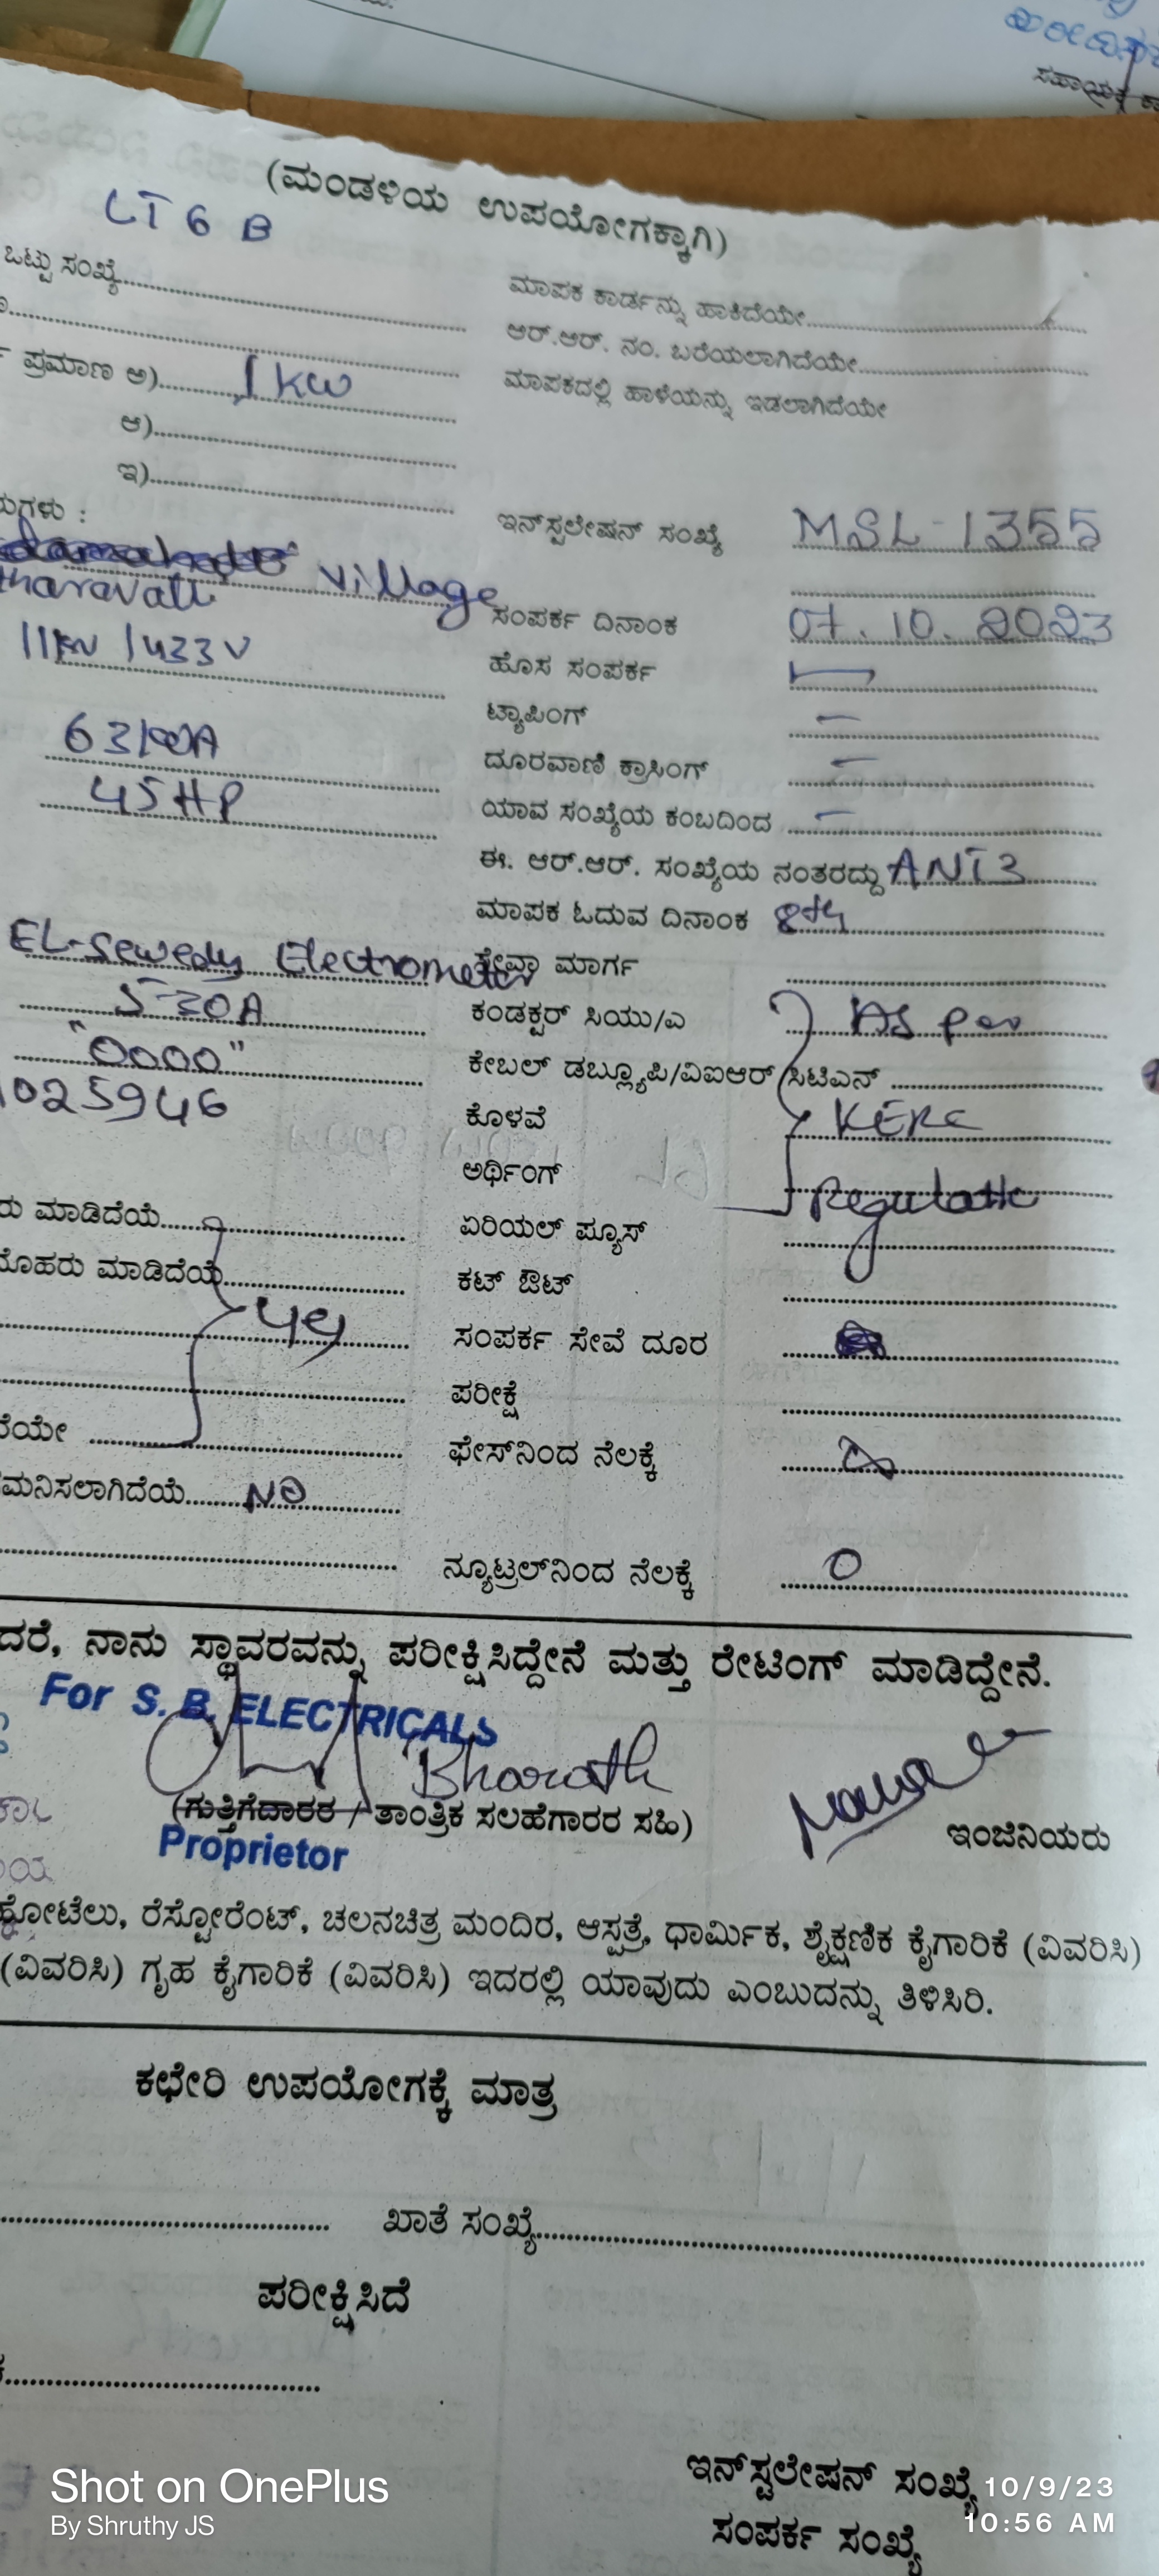 (ಮಂಡಳಿಯ ಉಪಯೋಗಕ್ಕಾಗಿ)
LT 6 B
ಒಟ್ಟು ಸಂಖ್ಯೆ
ಮಾಪಕ ಕಾರ್ಡನ್ನು ಹಾಕಿದೆಯೇ
ಆರ್.ಆರ್. ನಂ. ಬರೆಯಲಾಗಿದೆಯೇ
ಪ್ರಮಾಣ ಅ) 1 KW
ಮಾಪಕದಲ್ಲಿ ಹಾಳೆಯನ್ನು ಇಡಲಾಗಿದೆಯೇ
ಆ)
ಇ)
ಇನ್‌ಸ್ಟಲೇಷನ್ ಸಂಖ್ಯೆ MSL-1355
village
tharavalli
ಸಂಪರ್ಕ ದಿನಾಂಕ 07.10.2023
11kv/433V
ಹೊಸ ಸಂಪರ್ಕ
ಟ್ಯಾಪಿಂಗ್
63KVA
ದೂರವಾಣಿ ಕ್ರಾಸಿಂಗ್
45HP
ಯಾವ ಸಂಖ್ಯೆಯ ಕಂಬದಿಂದ
ಈ. ಆರ್.ಆರ್. ಸಂಖ್ಯೆಯ ನಂತರದ್ದು ANT3
ಮಾಪಕ ಓದುವ ದಿನಾಂಕ 8th
EL-Sewedy Electrometer
ಸೇವಾ ಮಾರ್ಗ
5-30A
ಕಂಡಕ್ಟರ್ ಸಿಯು/ಎ As per
"0000"
ಕೇಬಲ್ ಡಬ್ಲ್ಯೂಪಿ/ವಿಐಆರ್/ಸಿಟಿಎನ್
1025946
ಕೊಳವೆ KERC
ಅರ್ಥಿಂಗ್
ರು ಮಾಡಿದೆಯೆ
ಏರಿಯಲ್ ಪ್ಯೂಸ್
ಮೊಹರು ಮಾಡಿದೆಯೆ
ಕಟ್ ಔಟ್
ಸಂಪರ್ಕ ಸೇವೆ ದೂರ
ಪರೀಕ್ಷೆ
ಫೇಸ್‌ನಿಂದ ನೆಲಕ್ಕೆ
ಮನಿಸಲಾಗಿದೆಯೆ NO
ನ್ಯೂಟ್ರಲ್‌ನಿಂದ ನೆಲಕ್ಕೆ 0
ದರೆ, ನಾನು ಸ್ಥಾವರವನ್ನು ಪರೀಕ್ಷಿಸಿದ್ದೇನೆ ಮತ್ತು ರೇಟಿಂಗ್ ಮಾಡಿದ್ದೇನೆ.
For S. B. ELECTRICALS
Bharath
(ಗುತ್ತಿಗೆದಾರರ / ತಾಂತ್ರಿಕ ಸಲಹೆಗಾರರ ಸಹಿ)
ಇಂಜಿನಿಯರು
Proprietor
ಹೋಟೆಲು, ರೆಸ್ಟೋರೆಂಟ್, ಚಲನಚಿತ್ರ ಮಂದಿರ, ಆಸ್ಪತ್ರೆ, ಧಾರ್ಮಿಕ, ಶೈಕ್ಷಣಿಕ ಕೈಗಾರಿಕೆ (ವಿವರಿಸಿ)
(ವಿವರಿಸಿ) ಗೃಹ ಕೈಗಾರಿಕೆ (ವಿವರಿಸಿ) ಇದರಲ್ಲಿ ಯಾವುದು ಎಂಬುದನ್ನು ತಿಳಿಸಿರಿ.
ಕಛೇರಿ ಉಪಯೋಗಕ್ಕೆ ಮಾತ್ರ
ಖಾತೆ ಸಂಖ್ಯೆ
ಪರೀಕ್ಷಿಸಿದೆ
ಇನ್‌ಸ್ಟಲೇಷನ್ ಸಂಖ್ಯೆ
ಸಂಪರ್ಕ ಸಂಖ್ಯೆ
Shot on OnePlus
By Shruthy JS
10/9/23
10:56 AM